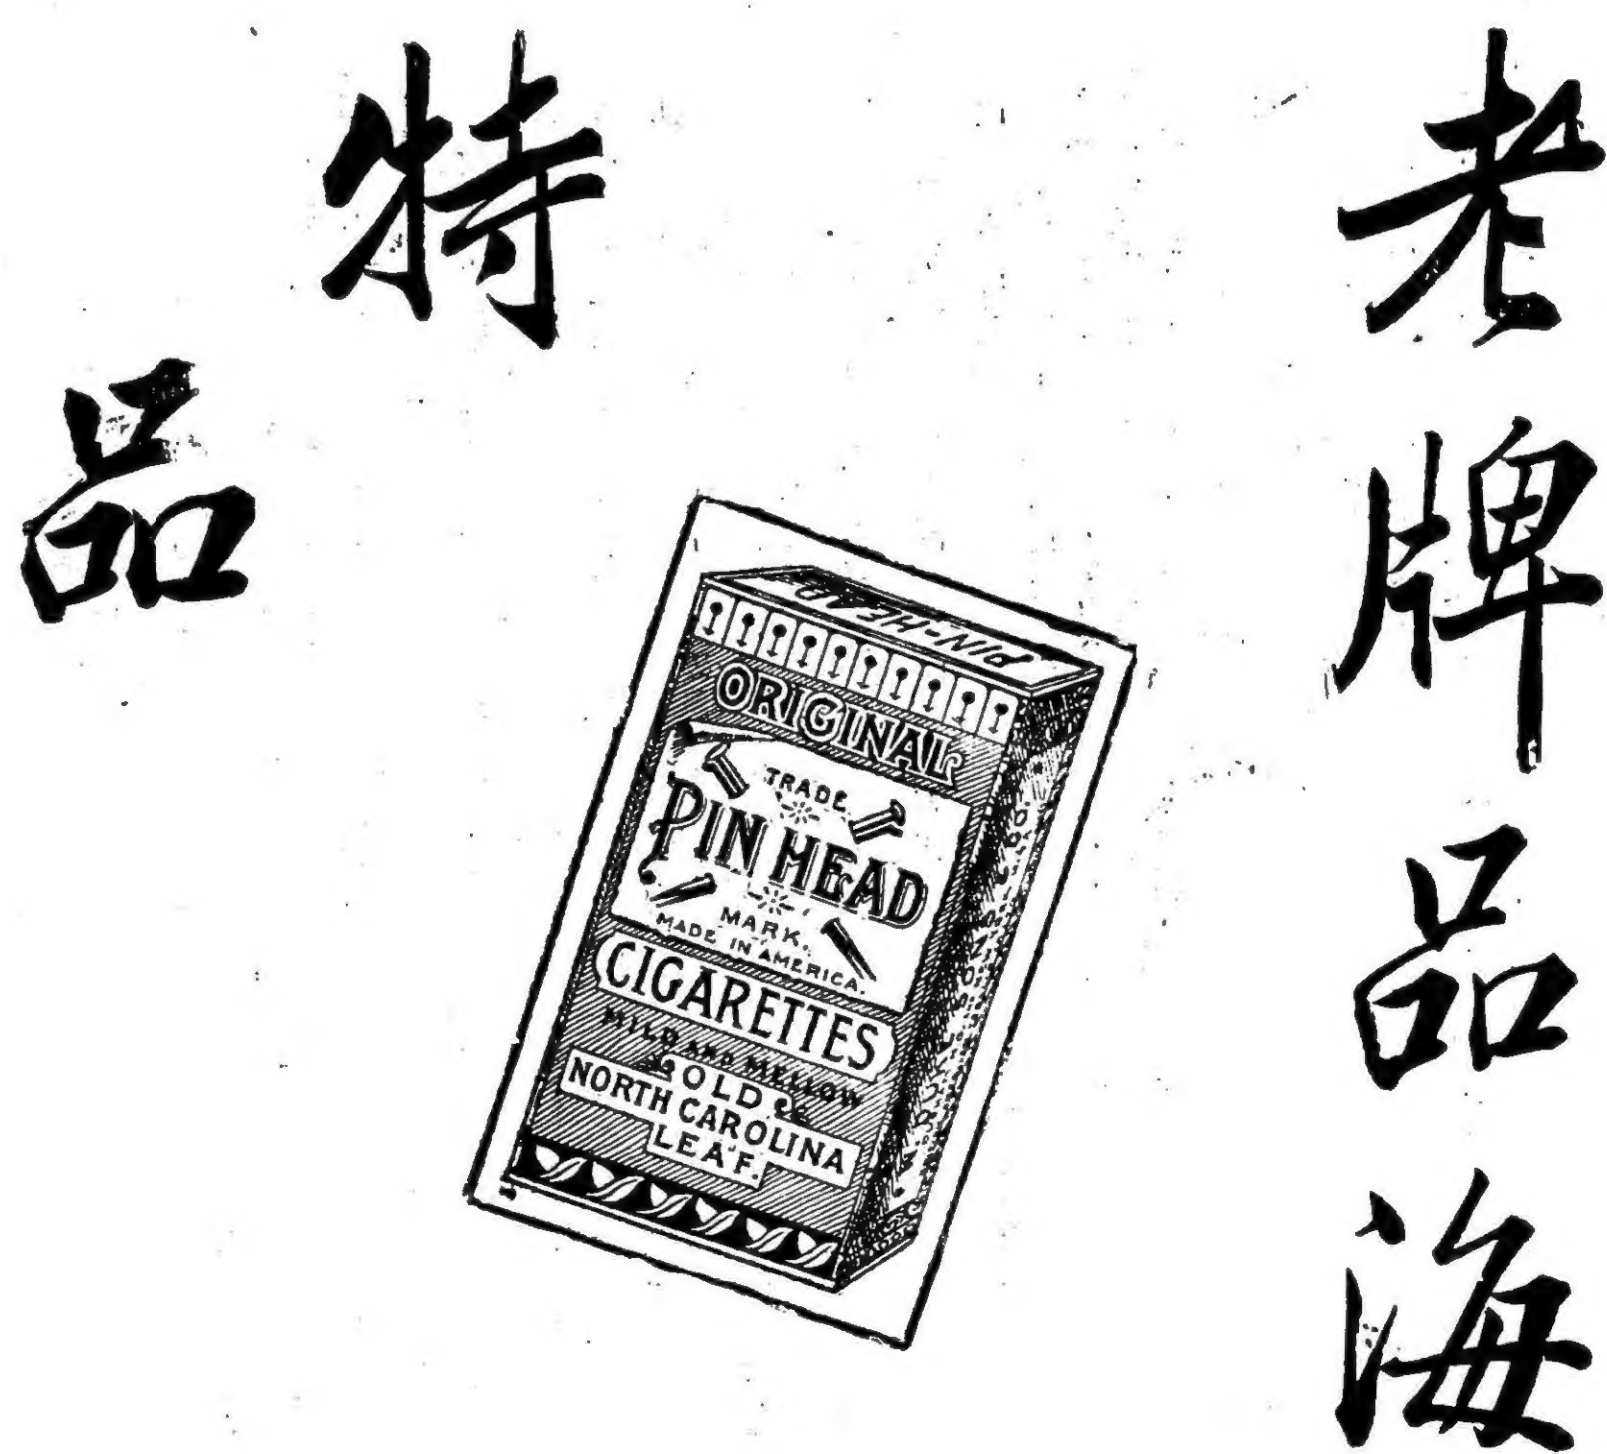 老牌品海
特品
PIN-HEAD
ORIGINAL
TRADE
PIN HEAD
MARK.
MADE IN AMERICA.
CIGARETTES
MILD AND MELLOW
OLD
NORTH CAROLINA
LEAF.